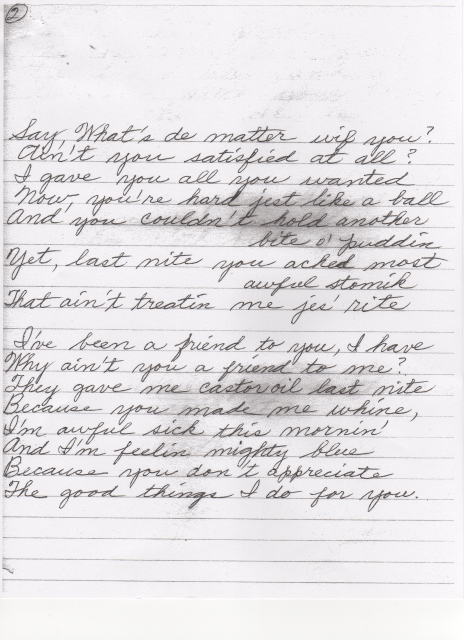 2
Say, What's de matter wif you?
Ain't you satisfied at all?
I gave you all you wanted
Now, you're hard jest like a ball
And you couldn't hold another
bite o' puddin
Yet, last nite you acked most
awful stomik
That ain't treatin me jes' rite
I've been a friend to you, I have
Why ain't you a friend to me?
They gave me castor oil last nite
Because you made me whine,
I'm awful sick this mornin'
And I'm feelin mighty blue
Because you don't appreciate
The good things I do for you.